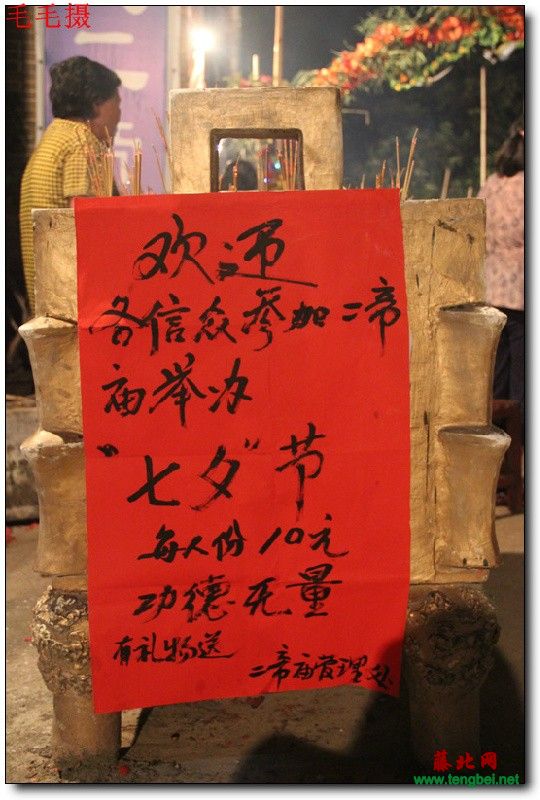 毛毛摄
欢迎
各信众参加二帝
庙举办
“七夕”节
每人份10元
功德无量
有礼物送
二帝庙管理处
藤北网
www.tengbei.net